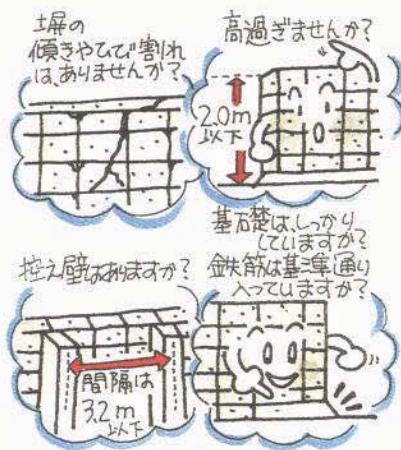 塀の
傾きやひび割れ
は、ありませんか?
高過ぎませんか?
2.0m
以下
控え壁はありますか?
間隔は
3.2m
以下
基礎は、しっかり
していますか?
鉄筋は基準通り
入っていますか?